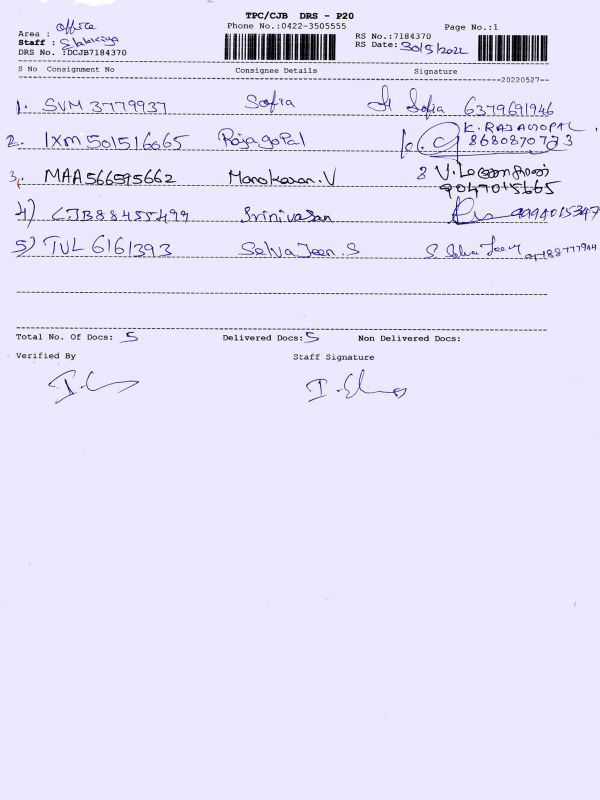 TPC/CJB DRS - P20
Area : office Phone No.:0422-3505555 Page No.:1
Staff : RS No.:7184370
DRS No. :DCJB7184370 RS Date: 30/5/2022
S No Consignment No Consignee Details Signature
20220527
1. SVM 3779937 Sofia Sofia 6379691946
2. IXM 501516065 Rajagopal K. RAJAGOPAL
3. MAA566595662 Manokaran.V
9047015665
4) CJB88455499 Srinivasan 9994015347
5) TVL 6161393 Selva Jeen.S
Total No. Of Docs: 5 Delivered Docs: 5 Non Delivered Docs:
Verified By Staff Signature